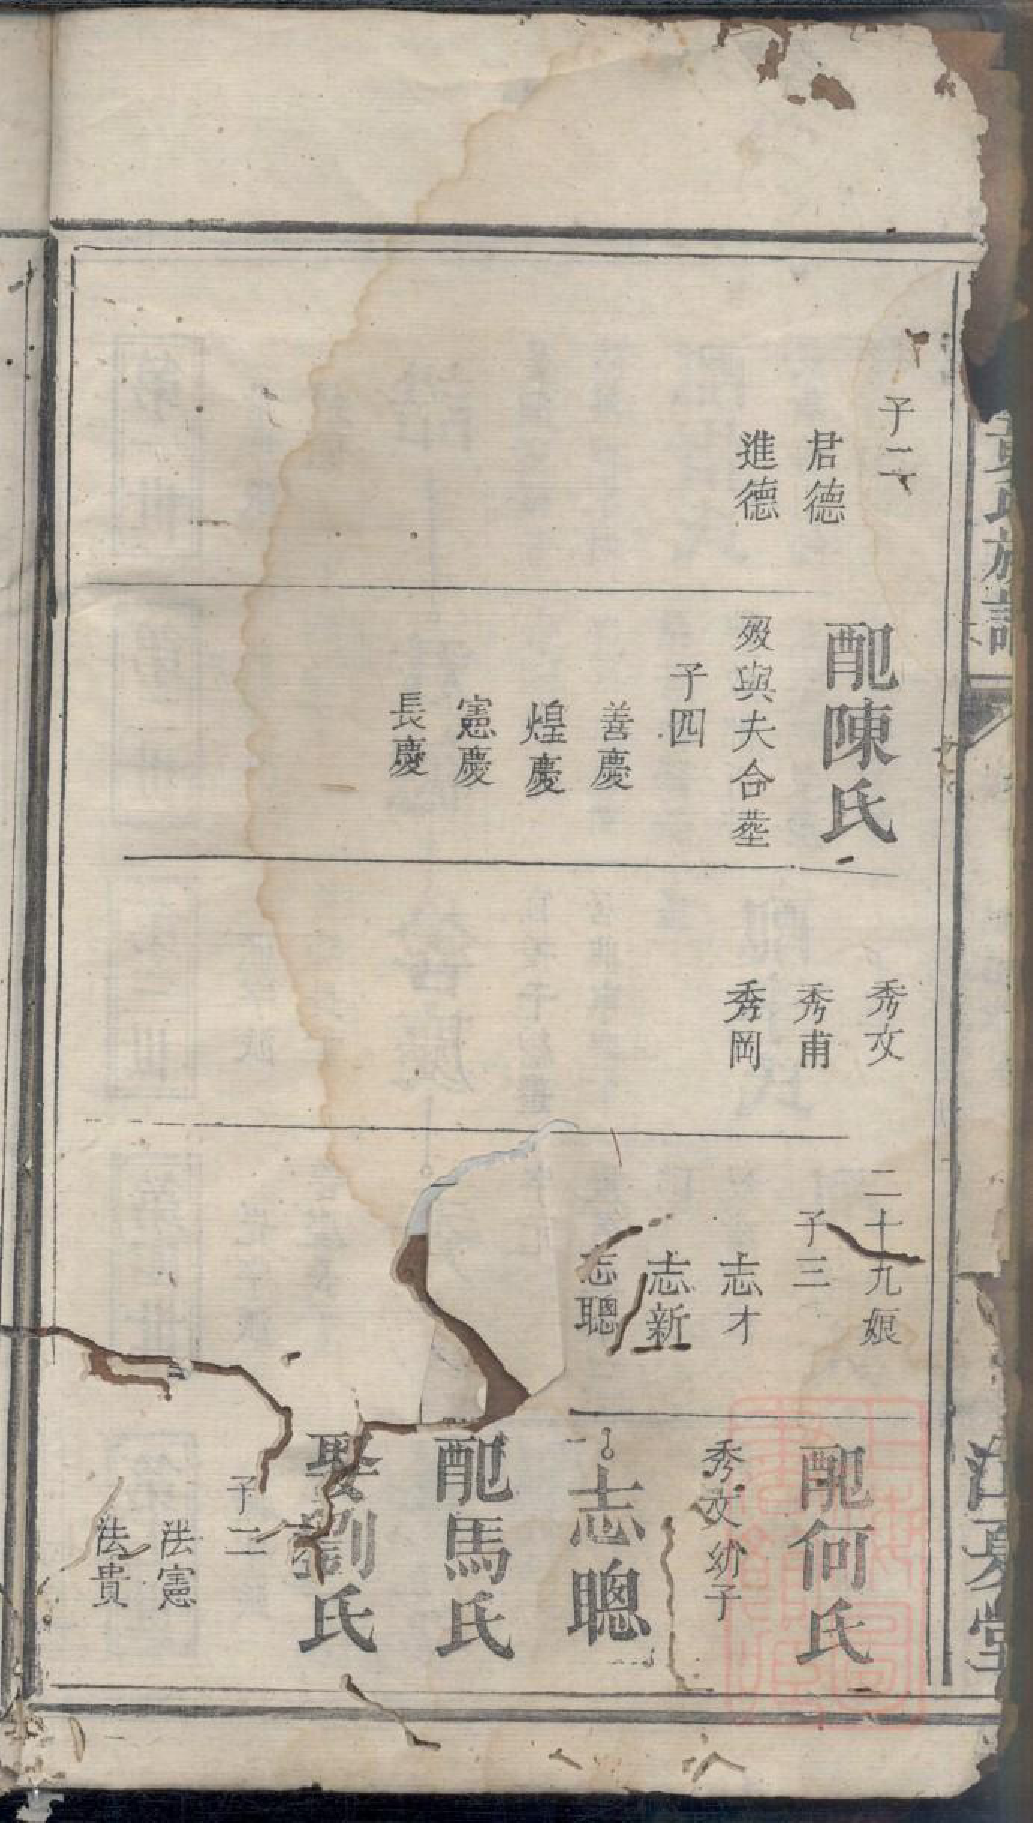 黃氏族譜
江夏堂
子二
君德
進德
配陳氏
歿與夫合塟
子四
善慶
煌慶
憲慶
長慶
秀文
秀甫
秀岡
二十九娘
子三
志才
志新
志聰
配何氏
秀文幼子
志聰
配馬氏
娶劉氏
子二
法憲
法貴